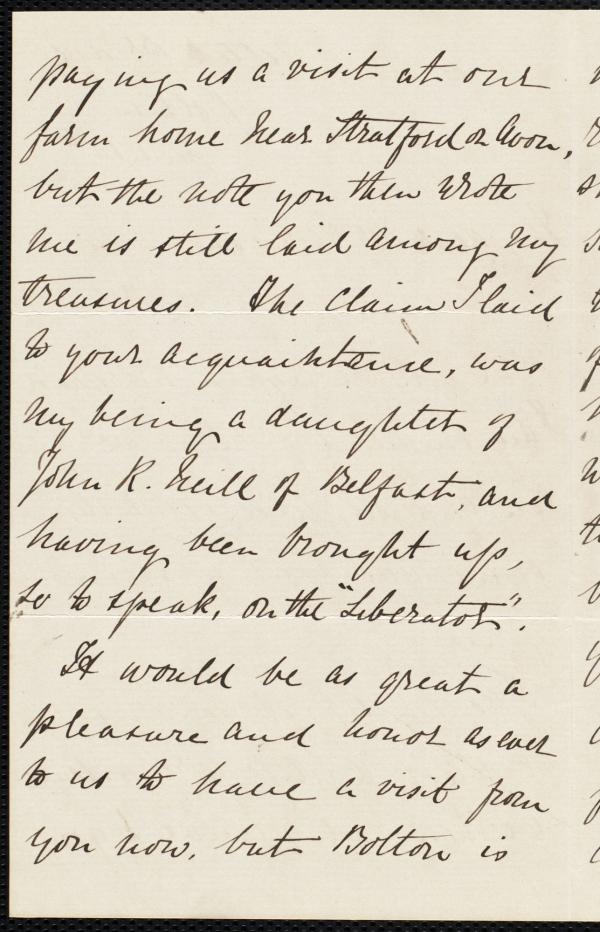 paying us a visit at our
farm home near Stratford on Avon,
but the note you then wrote
me is still laid among my
treasures. The claim I laid
to your acquaintance, was
my being a daughter of
John R. Neill of Belfast, and
having been brought up,
so to speak, on the "Liberator".
It would be as great a
pleasure and honor as ever
to us to have a visit from
you now, but Bolton is